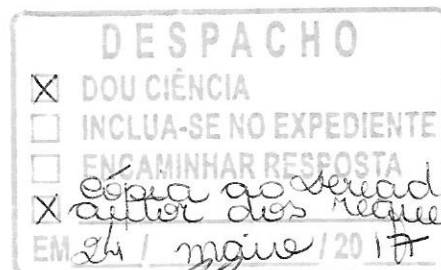 DESPACHO
X DOU CIÊNCIA
INCLUA-SE NO EXPEDIENTE
ENCAMINHAR RESPOSTA
Cópia ao Veread
X autor dos reque
EM 24 / maio / 20 17